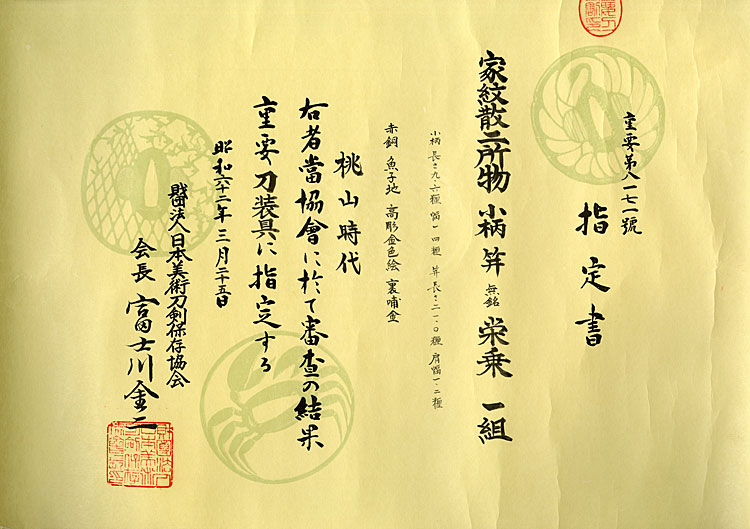 重要第八一七一號
指定書
家紋散二所物 小柄 笄 無銘 栄乗 一組
小柄 長さ九・六糎 幅一・四糎 笄 長さ二一・〇糎 肩幅一・二糎
赤銅 魚子地 高彫金色絵 裏哺金
桃山時代
右者當協會に於て審査の結果
重要刀装具に指定する
昭和六十二年三月二十五日
財團法人日本美術刀剣保存協会
会長 富士川金二